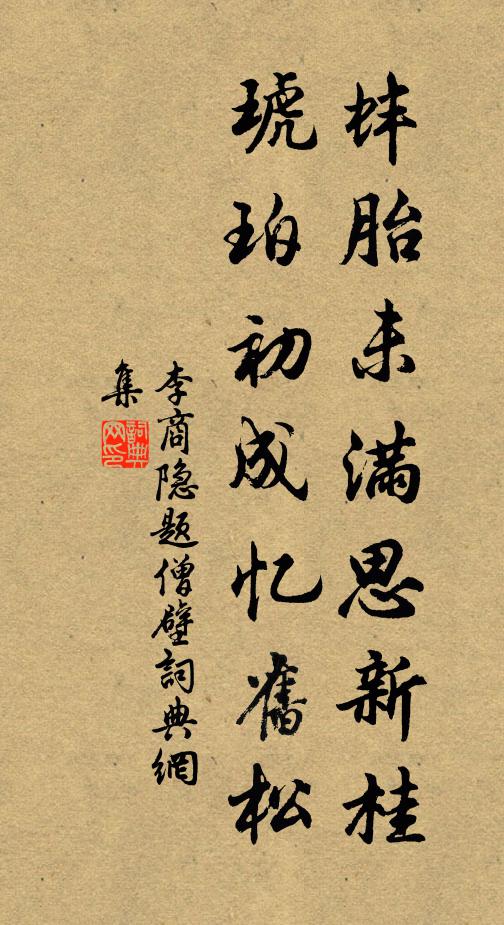 蚌胎未满思新桂
琥珀初成忆旧松
李商隐题僧壁詞典網
集
詞典网印